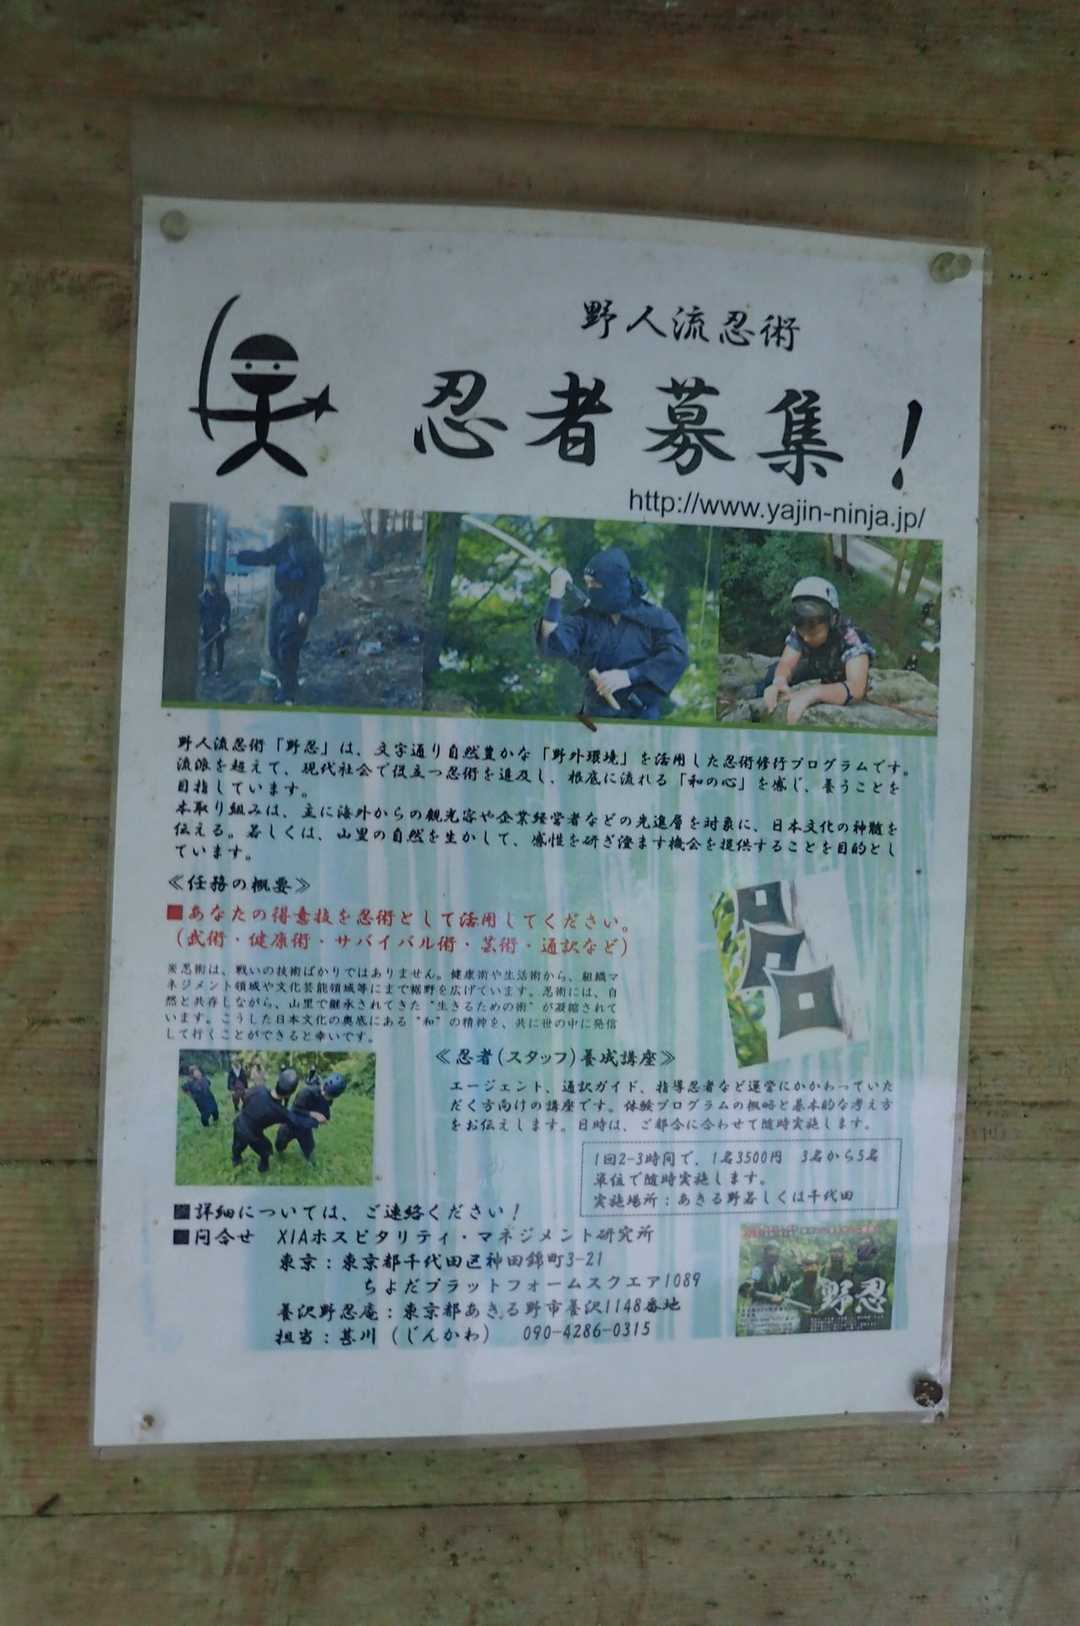 野人流忍術
忍者募集！
http://www.yajin-ninja.jp/
野人流忍術「野忍」は、文字通り自然豊かな「野外環境」を活用した忍術修行プログラムです。
流派を超えて、現代社会で役立つ忍術を追及し、根底に流れる「和の心」を感じ、養うことを
目指しています。
本取り組みは、主に海外からの観光客や企業経営者などの先進層を対象に、日本文化の神髄を
伝える。若しくは、山里の自然を生かして、感性を研ぎ澄ます機会を提供することを目的とし
ています。
≪任務の概要≫
■あなたの得意技を忍術として活用してください。
（武術・健康術・サバイバル術・芸術・通訳など）
※忍術は、戦いの技術ばかりではありません。健康術や生活術から、組織マ
ネジメント領域や文化芸能領域等にまで裾野を広げています。忍術には、自
然と共存しながら、山里で継承されてきた“生きるための術”が凝縮されて
います。こうした日本文化の奥底にある“和”の精神を、共に世の中に発信
して行くことができると幸いです。
≪忍者(スタッフ)養成講座≫
エージェント、通訳ガイド、指導忍者など運営にかかわっていた
だく方向けの講座です。体験プログラムの概略と基本的な考え方
をお伝えします。日時は、ご都合に合わせて随時実施します。
1回2-3時間で、1名3500円 3名から5名
単位で随時実施します。
実施場所：あきる野若しくは千代田
■詳細については、ご連絡ください！
■問合せ XIAホスピタリティ・マネジメント研究所
東京：東京都千代田区神田錦町3-21
ちよだプラットフォームスクエア1089
養沢野忍庵：東京都あきる野市養沢1148番地
担当：甚川（じんかわ） 090-4286-0315
野忍